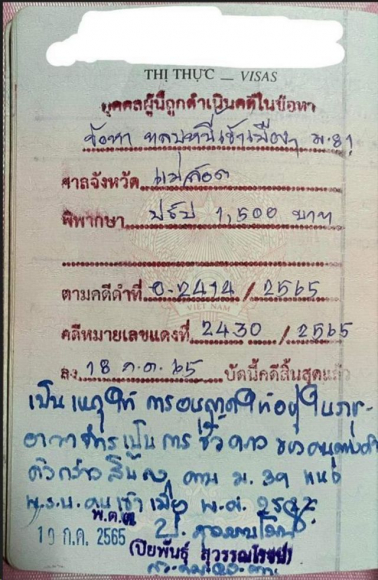 THỊ THỰC _ VISAS
บุคคลผู้นี้ถูกดำเนินคดีในข้อหา
ข้อหา หลบหนีเข้าเมืองฯ ม.81
ศาลจังหวัด แม่สอด
พิพากษา ปรับ 1,500 บาท
VIET NAM
ตามคดีดำที่ อ.2414 / 2565
คดีหมายเลขแดงที่ 2430 / 2565
ลง 18 ก.ค. 65 บัดนี้คดีสิ้นสุดแล้ว
เป็นเหตุให้ การอนุญาตให้อยู่ในราช-
อาณาจักรเป็นการชั่วคราว ของคนต่างด้าว
ดังกล่าวสิ้นลง ตาม ม.39 แห่ง
พ.ร.บ. คนเข้าเมือง พ.ศ. 2522
พ.ต.ต.
19 ก.ค. 2565
(ปิยพันธุ์ สุวรรณโรจน์)